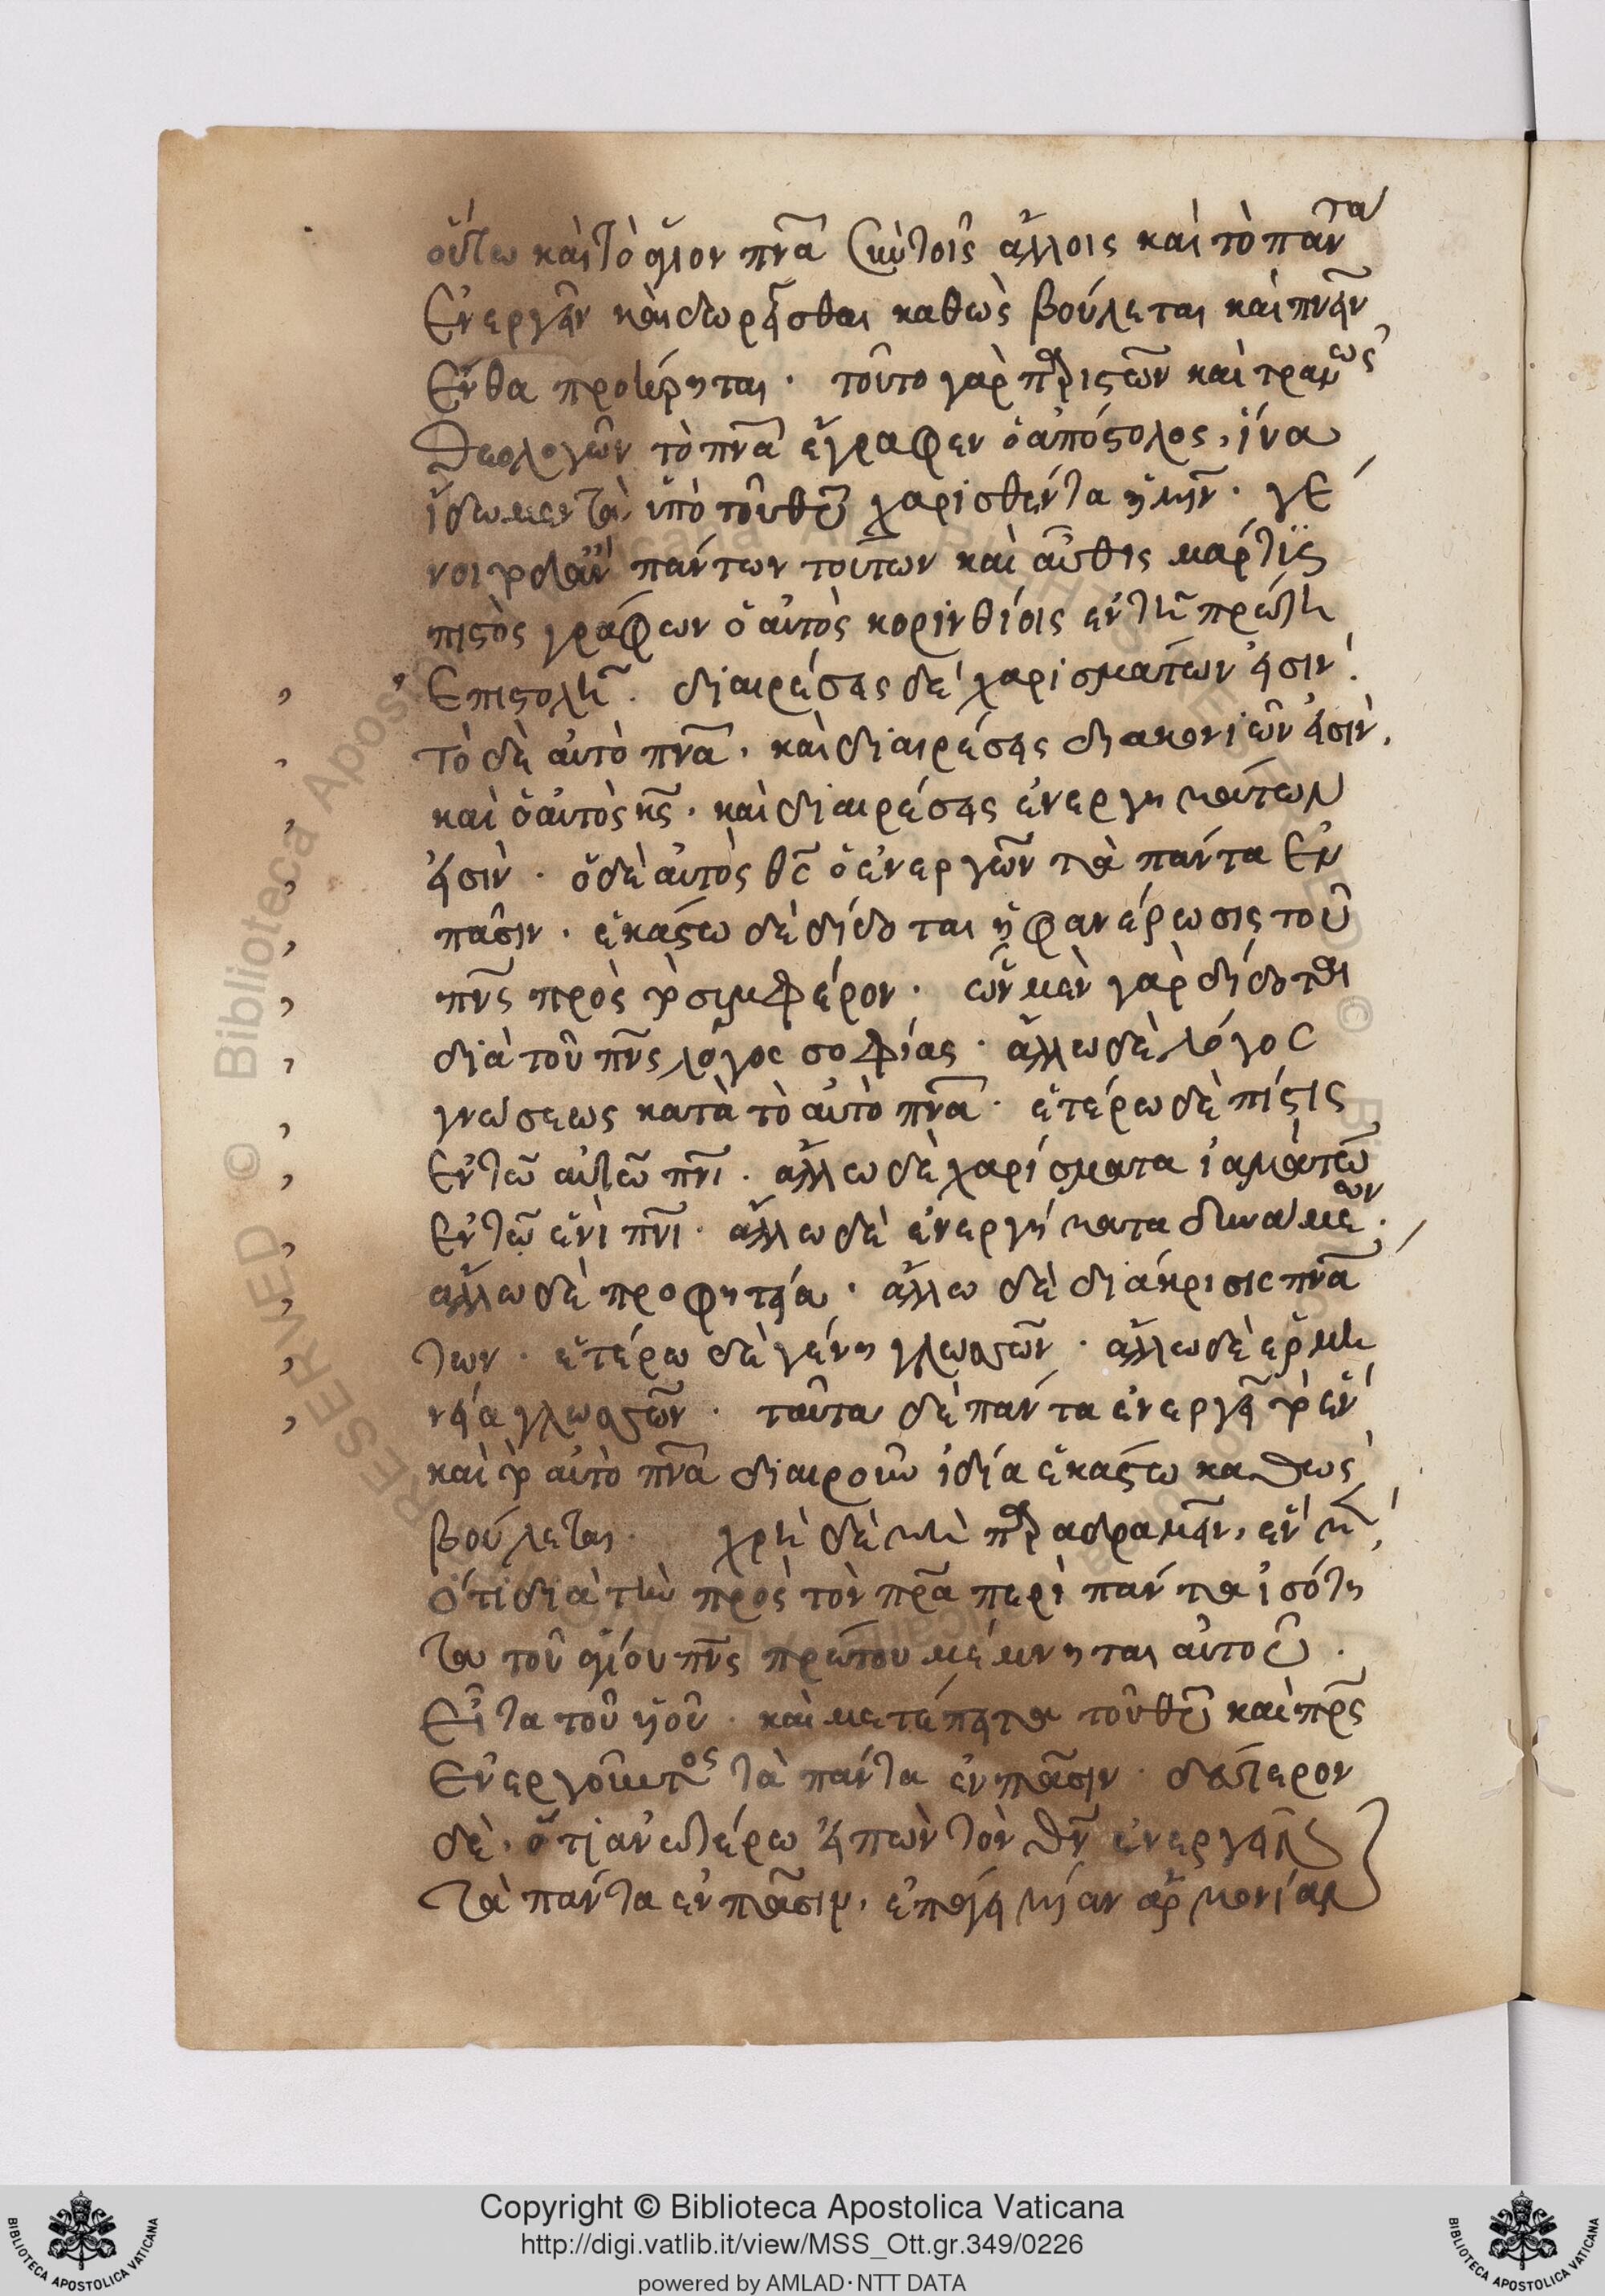 οὕτω καὶ τὸ ἅγιον πνᾶ σὺν τοῖς ἄλλοις καὶ τὸ πάντα
ἐνεργεῖν καὶ δωρεῖσθαι καθὼς βούλεται καὶ πνεῖν
ἔνθα προῄρηται · τοῦτο γὰρ παριστῶν καὶ τρανῶς
θεολογῶν τὸ πνᾶ ἔγραφεν ὁ ἀπόστολος, ἵνα
ἴδωμεν τὰ ὑπὸ τοῦ θυ χαρισθέντα ἡμῖν · γέ
νοιτο δ' ἂν πάντων τούτων καὶ αὖθις μάρτυς
πιστὸς γράφων ὁ αὐτὸς κορινθίοις ἐν τῇ πρώτη
ἐπιστολῇ · διαιρέσεις δὲ χαρισμάτων εἰσίν ·
τὸ δὲ αὐτὸ πνᾶ · καὶ διαιρέσεις διακονιῶν εἰσὶν,
καὶ ὁ αὐτὸς κς · καὶ διαιρέσεις ἐνεργημάτων
εἰσὶν · ὁ δὲ αὐτὸς θς ὁ ἐνεργῶν τὰ πάντα ἐν
πᾶσιν · ἑκάστω δὲ δίδοται ἡ φανέρωσις τοῦ
πνς πρὸς τὸ συμφέρον · ὧ μὲν γὰρ δίδοται
διὰ τοῦ πνς λόγος σοφίας · ἄλλω δὲ λόγος
γνώσεως κατὰ τὸ αὐτὸ πνᾶ · ἑτέρω δὲ πίστις
ἐν τῶ αὐτῶ πνι · ἄλλω δὲ χαρίσματα ἰαμάτων
ἐν τῶ ἑνὶ πνι · ἄλλω δὲ ἐνεργήματα δυνάμεων ·
ἄλλω δὲ προφητεία · ἄλλω δὲ διάκρισις πνᾶ
των · ἑτέρω δὲ γένη γλωσσῶν · ἄλλω δὲ ἑρμη
νεία γλωσσῶν · ταῦτα δὲ πάντα ἐνεργεῖ τὸ ἓν
καὶ τὸ αὐτὸ πνᾶ διαιροῦν ἰδία ἑκάστω καθὼς
βούλεται · χρὴ δὲ μὴ παραδραμεῖν, ἓν μὲν
ὅτι διὰ τὴν πρὸς τὸν πρα περὶ πάντα ἰσότη
τα τοῦ ἁγίου πνς πρώτου μέμνηται αὐτοῦ ·
εἶτα τοῦ υἱοῦ · καὶ μετέπειτα τοῦ θυ καὶ πρς
ἐνεργοῦντος τὰ πάντα ἐν πᾶσιν · δεύτερον
δὲ, ὅτι ἀνωτέρω εἰπὼν τὸν θν ἐνεργεῖν
τὰ πάντα ἐν πᾶσιν, ἐποίει μίαν ἁρμονίαν
Copyright © Biblioteca Apostolica Vaticana
http://digi.vatlib.it/view/MSS_Ott.gr.349/0226
powered by AMLAD·NTT DATA